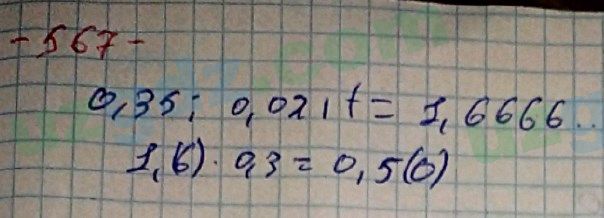 - 567 -
0,35; 0,021 = 1,6666..
1,6) · 0,3 = 0,5(0)